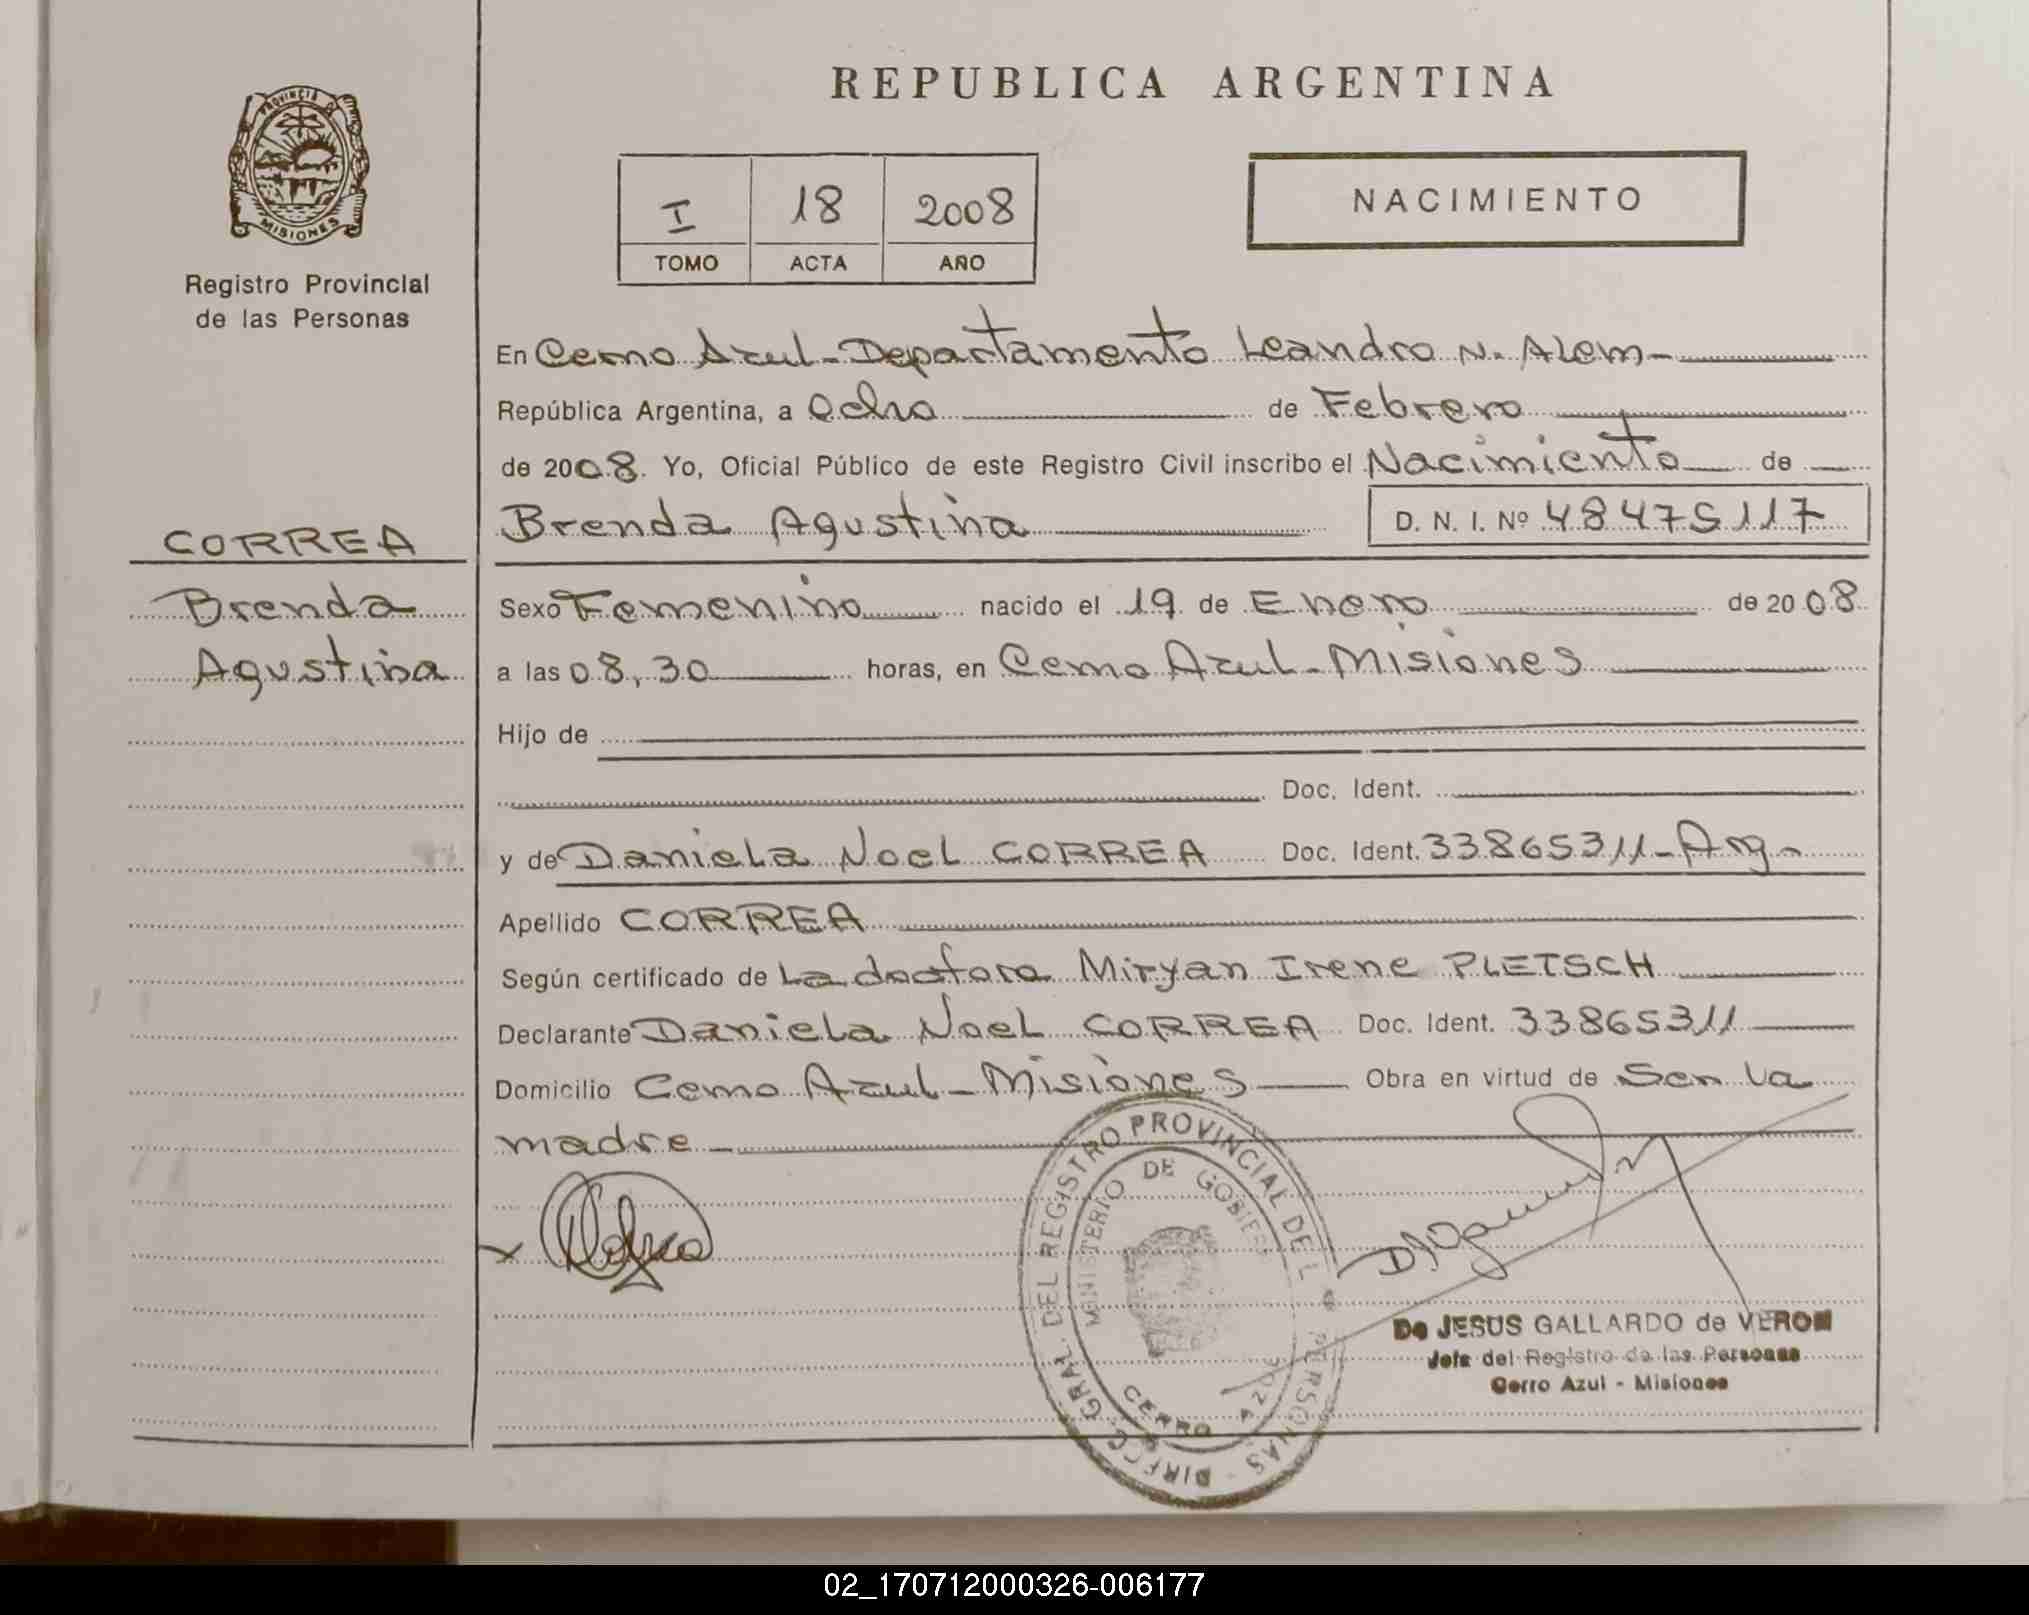 REPUBLICA ARGENTINA
PROVINCIA D
MISIONES
Registro Provincial
de las Personas
I 18 2008
TOMO ACTA AÑO
NACIMIENTO
En Cerro Azul - Departamento Leandro N. Alem -
República Argentina, a Ocho de Febrero
de 2008. Yo, Oficial Público de este Registro Civil inscribo el Nacimiento de
Brenda Agustina D. N. I. Nº 48475117
CORREA
Brenda
Agustina
Sexo Femenino nacido el 19 de Enero de 2008
a las 08,30 horas, en Cerro Azul - Misiones
Hijo de
Doc. Ident.
y de Daniela Noel CORREA Doc. Ident. 33865311 - Arg.
Apellido CORREA
Según certificado de La doctora Miryan Irene PLETSCH
Declarante Daniela Noel CORREA Doc. Ident. 33865311
Domicilio Cerro Azul - Misiones Obra en virtud de Ser La
madre
DIRECC. GRAL. DEL REGISTRO PROVINCIAL DE LAS PERSONAS
MINISTERIO DE GOBIERNO
CERRO AZUL
De JESUS GALLARDO de VERON
Jefe del Registro de las Personas
Cerro Azul - Misiones
02_170712000326-006177